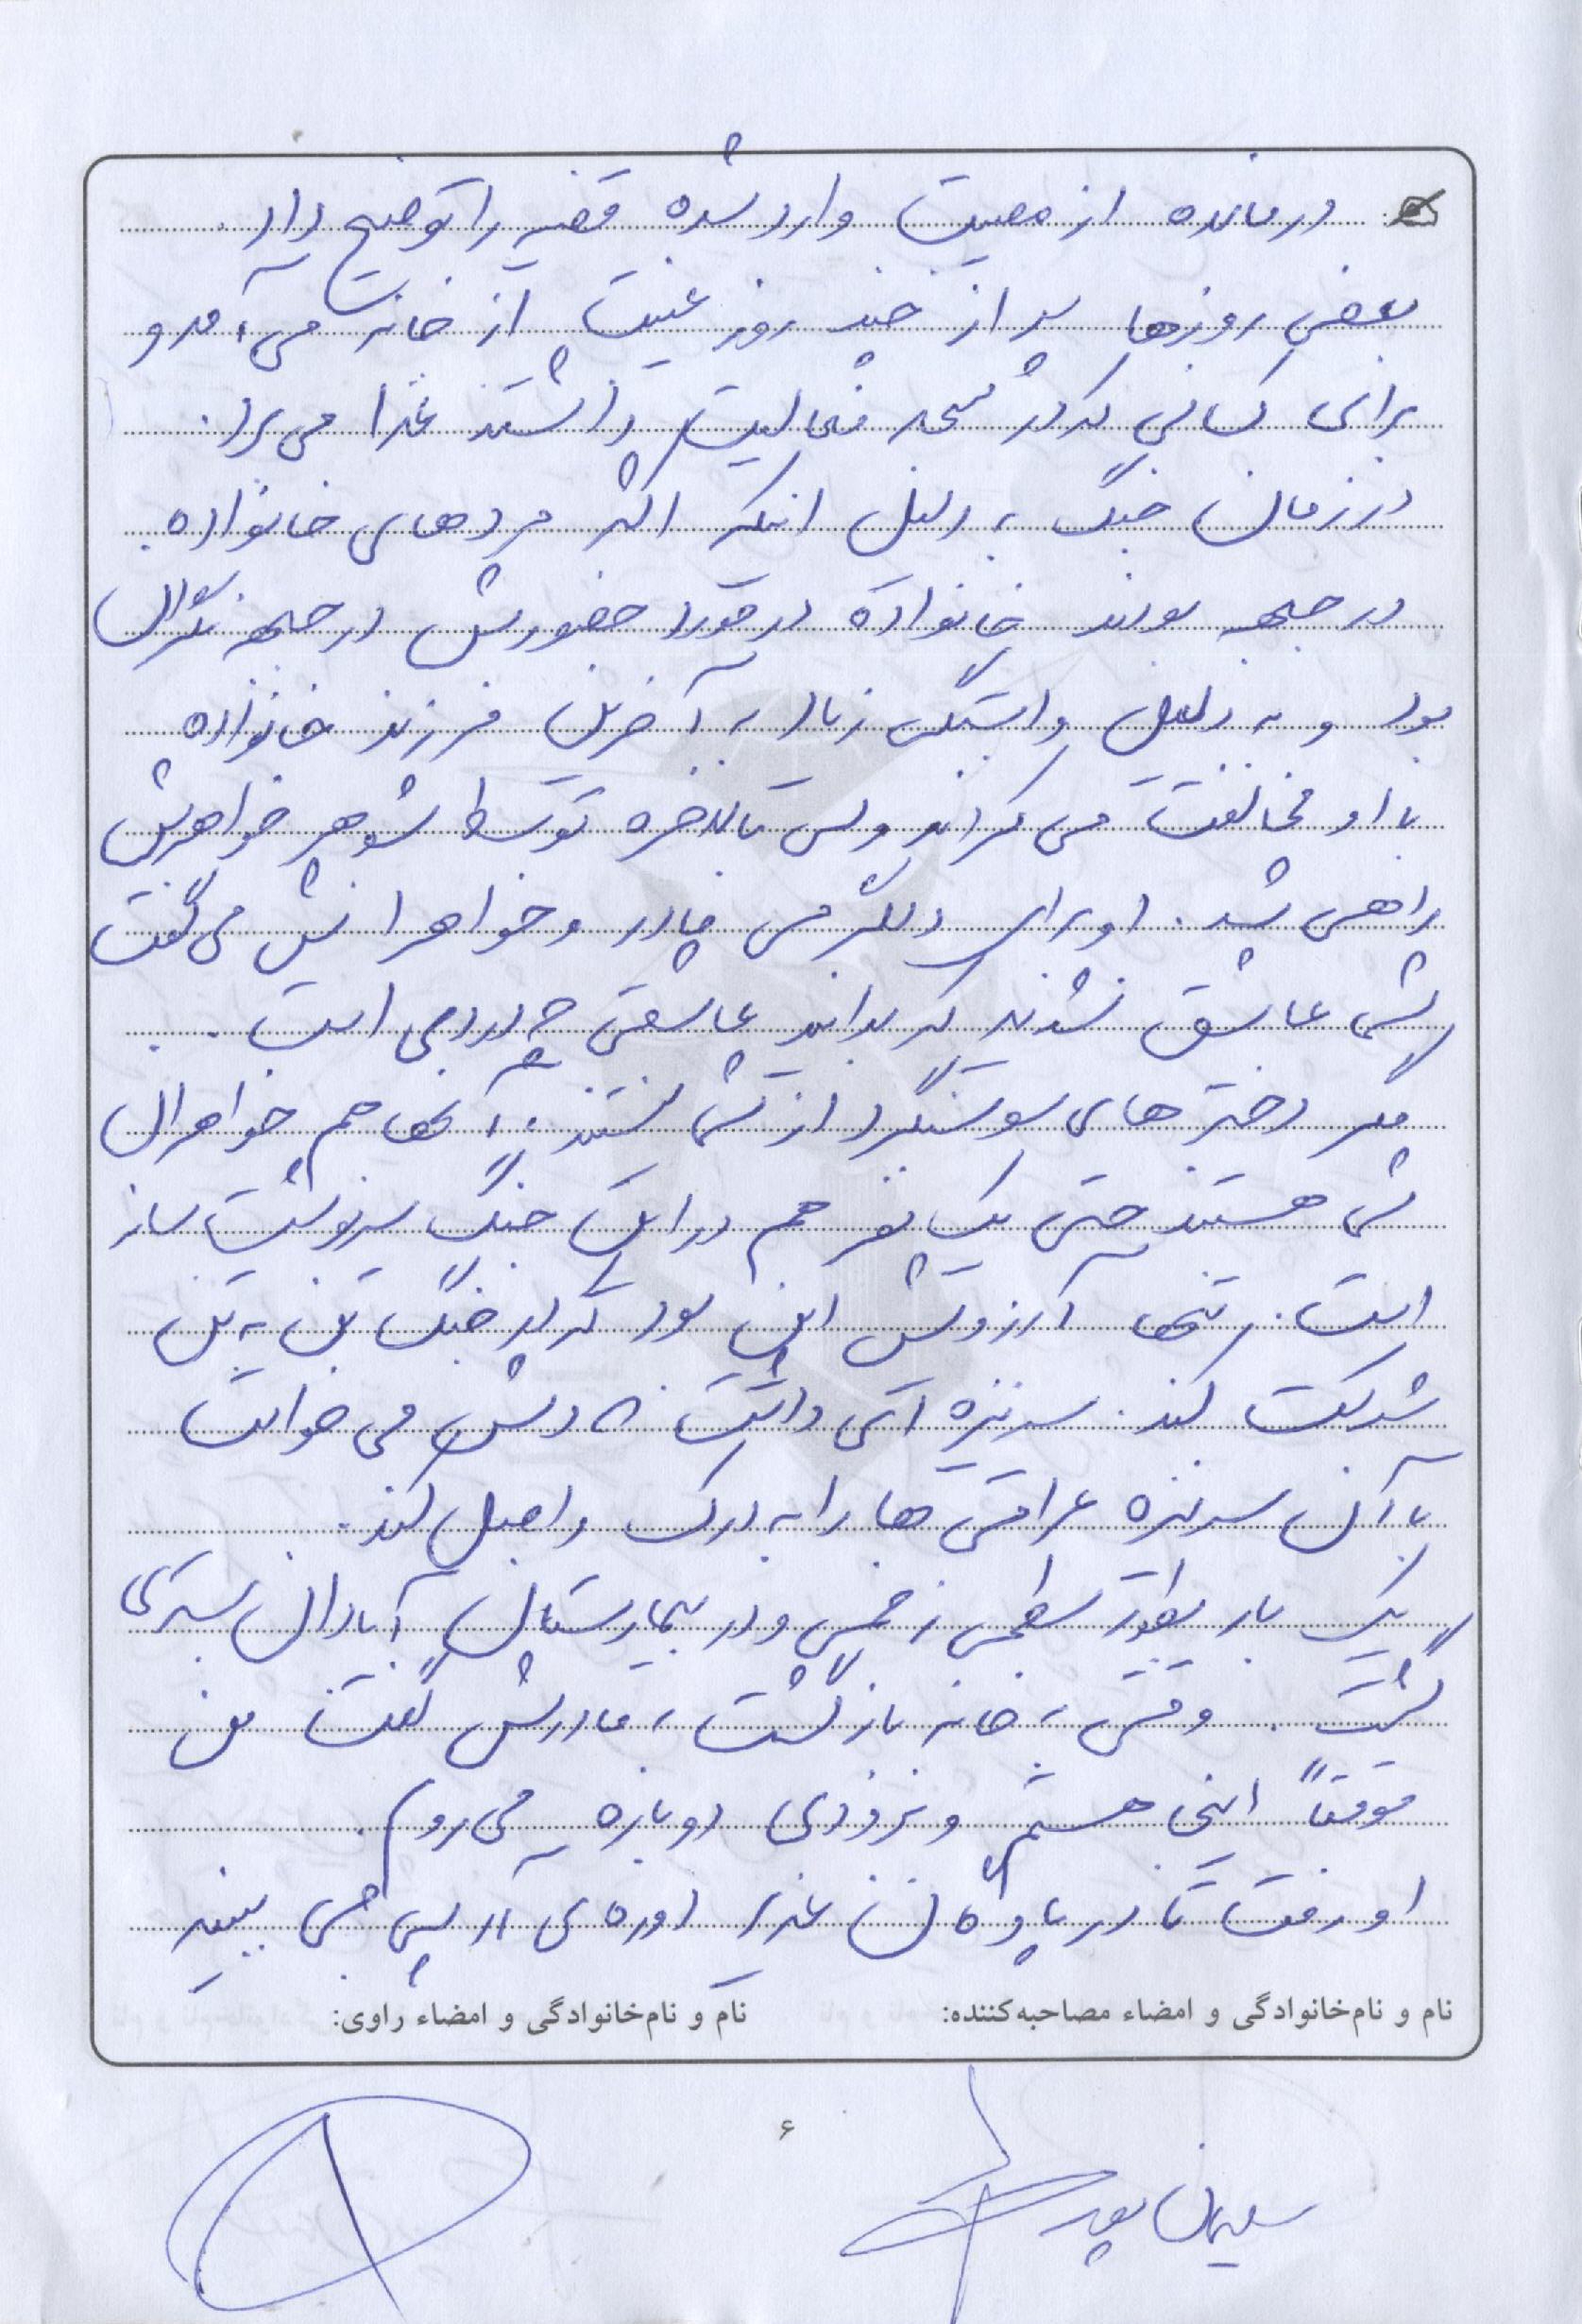 درمانده از مصیبت وارد شده قضیه را توضیح داد.
بعضی روزها پس از چند روز غیبت از خانه می آمد و
برای کسانی که در مسجد فعالیت داشتند غذا می برد.
در زمان جنگ به دلیل اینکه اکثر مردهای خانواده
در جبهه بودند خانواده در مورد حضورش در جبهه نگران
بود و به دلیل وابستگی زیاد به آخرین فرزند خانواده
با او مخالفت می کردند ولی بالاخره توسط شوهر خواهرش
راهی شد. او برای دلگرمی مادر و خواهرانش می گفت
شما عاشق نشدید که بدانید عاشقی چه دردی است.
مگر دخترهای سوسنگرد از شما نیستند. آنها هم خواهران
شما هستند حتی یک نفر هم در این جنگ سرنوشت ساز
است. تنها آرزویش این بود که در جنگ تن به تن
شرکت کند. سرنیزه ای داشت که دلش می خواست
با آن سرنیزه عراقی ها را به درک واصل کند.
یک بار بطور سطحی زخمی و در بیمارستان آبادان بستری
گشت. وقتی به خانه بازگشت به مادرش گفت من
موقتاً اینجا هستم و بزودی دوباره می روم.
او رفت تا در پادگان غدیر دوره ی آر پی جی ببیند
نام و نام‌خانوادگی و امضاء مصاحبه‌کننده:
نام و نام‌خانوادگی و امضاء راوی:
۶
سلیمان پور